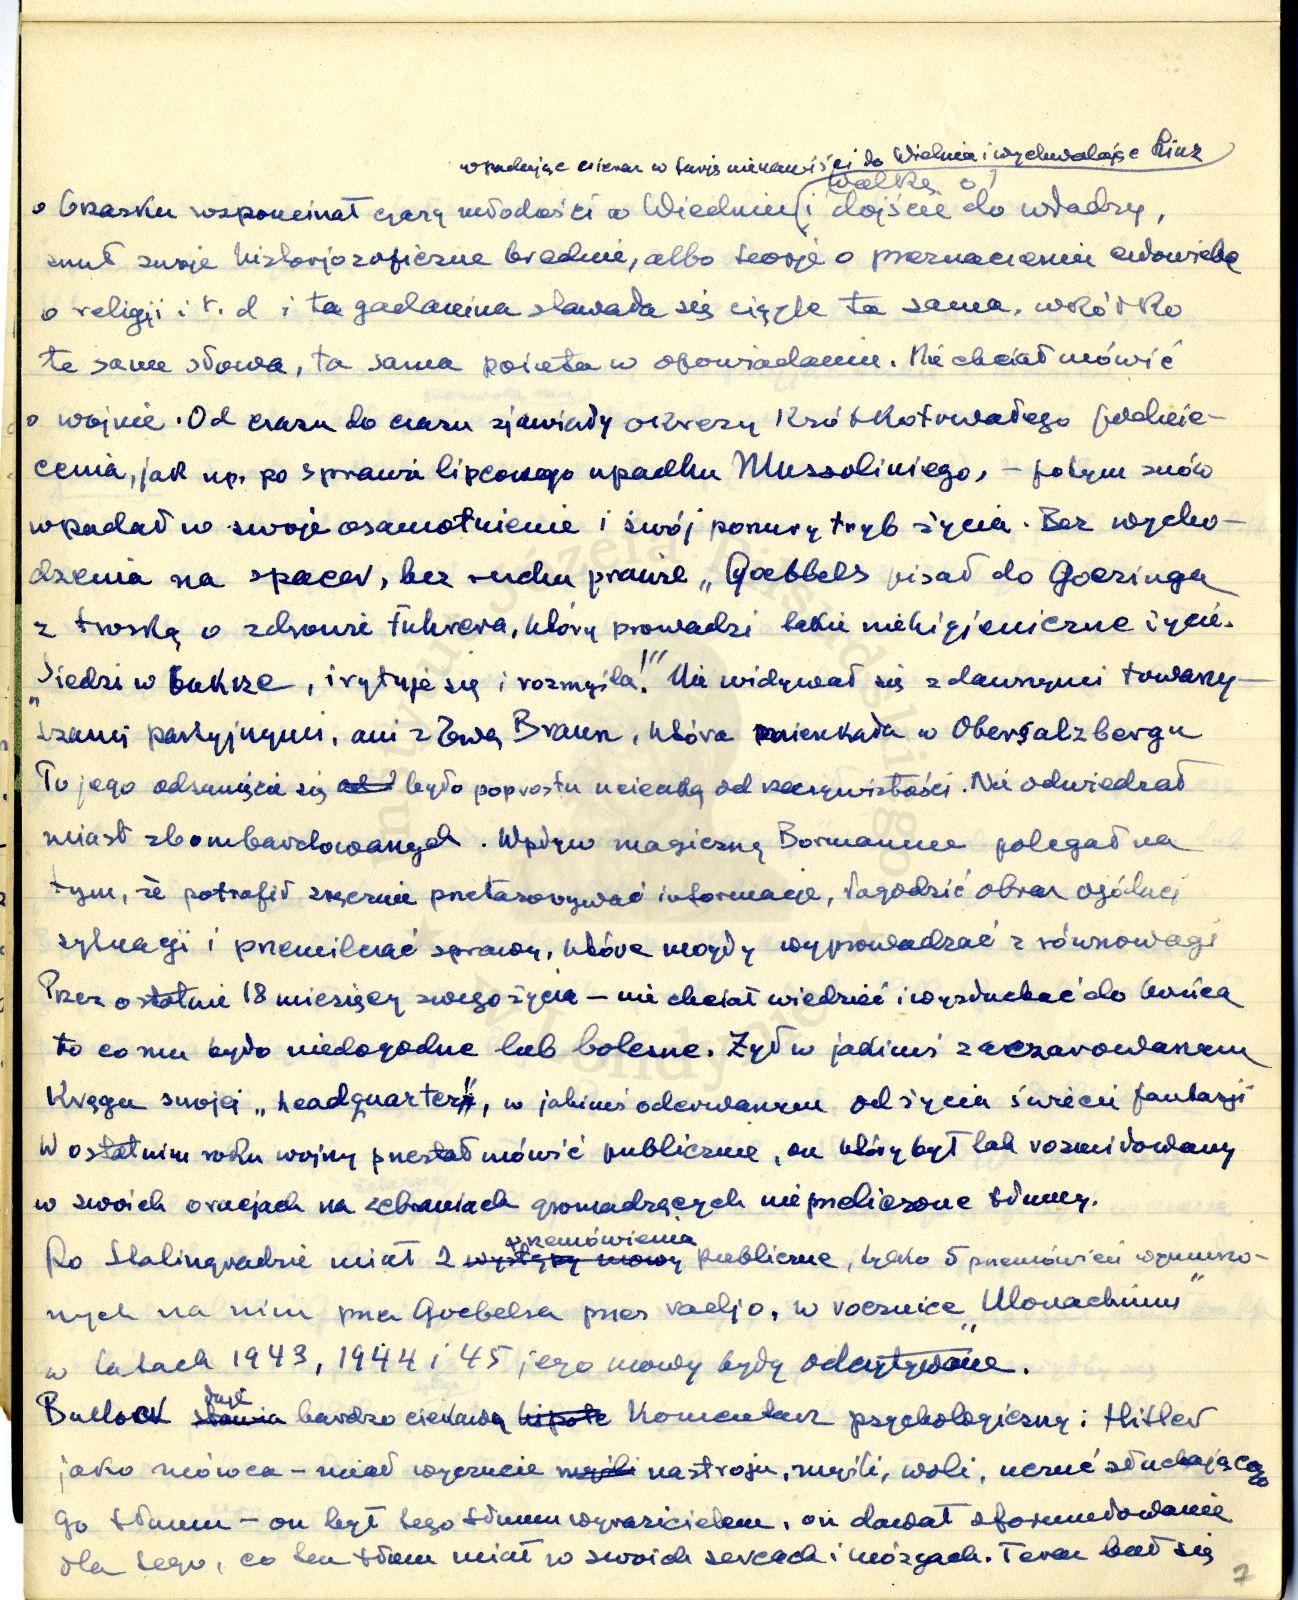 wpadając nieraz w swojej nienawiści do Wiednia i wychwalając Linz
walkę o
o brzasku wspominał czasy młodości w Wiedniu i dojście do władzy,
snuł swoje historjozoficzne brednie, albo teorje o przeznaczeniu człowieka
o religji i t. d i ta gadanina stawała się ciągle ta sama, wkółko
te same słowa, ta sama pointa w opowiadaniu. Nie chciał mówić
o wojnie. Od czasu do czasu zjawiały okresy krótkotrwałego podnie-
cenia, jak np. po sprawie lipcowego upadku Mussoliniego, – potym znów
wpadał w swoje osamotnienie i swój ponury tryb życia. Bez wycho-
dzenia na spacer, bez ruchu prawie „Goebbels pisał do Goeringa
z troską o zdrowie Führera, który prowadzi takie niehigjeniczne życie.
„Siedzi w bukrze, irytuje się i rozmyśla!" Nie widywał się z dawnymi towarzy-
szami partyjnymi, ani z Ewą Braun, która mieszkała w Obersalzbergu
To jego odsunięcie się od było poprostu ucieczką od rzeczywistości. Nie odwiedzał
miast zbombardowanych. Wpływ magiczny Bormanna polegał na
tym, że potrafił zręcznie przetasowywać informacje, łagodzić obraz ogólnej
sytuacji i przemilczać sprawy, które mogły wyprowadzać z równowagi
Przez ostatnie 18 miesięcy swego życia – nie chciał wiedzieć i wysłuchać do końca
to co mu było niedogodne lub bolesne. Żył w jakimś zaczarowanym
kręgu swojej „headquarter", w jakimś oderwanym od życia świecie fantazji
W ostatnim roku wojny przestał mówić publicznie, on który był tak rozmiłowany
w swoich oracjach na zebraniach gromadzących nieprzeliczone tłumy.
przemówienia
Po Stalingradzie miał 2 wystąpy mowy publiczne, tylko 5 przemówień wymuszo-
nych na nim przez Goebelsa przez radjo, w rocznice „Monachium"
w latach 1943, 1944 i 45 jego mowy były odczytywane.
daje
Bullock stawia bardzo ciekawą hipote komentarz psychologiczny: Hitler
jako mówca – miał wyczucie myśli nastroju, myśli, woli, uczuć słuchającego
go tłumu – on był tego tłumu wyrazicielem, on dawał sformułowanie
dla tego, co ten tłum miał w swoich sercach i mózgach. Teraz bał się
7
Instytut Józefa Piłsudskiego
w Londynie